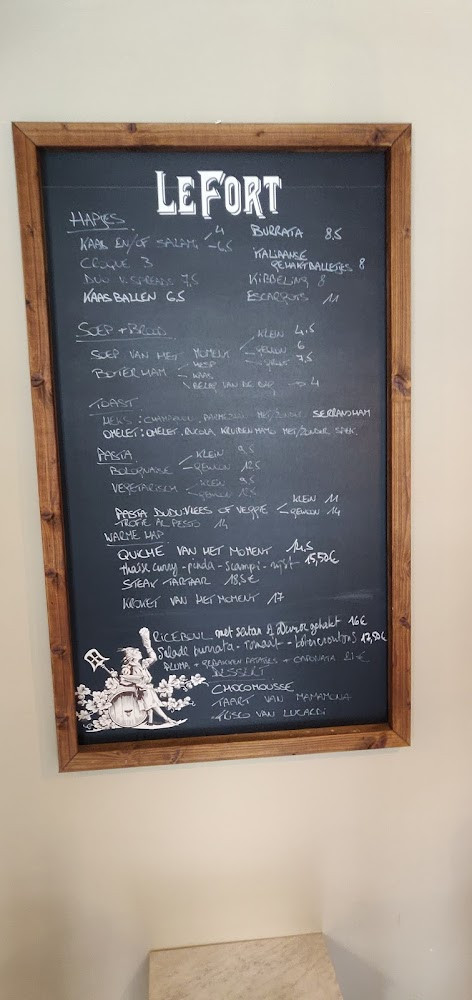 LEFORT
HAPJES
KAAS EN/OF SALAMI 4 - 6,5
CROQUE 3
DUO V. SPREADS 7,5
KAASBALLEN 6,5
BURRATA 8,5
ITALIAANSE GEHAKTBALLETJES 8
KIBBELING 8
ESCARGOTS 11
SOEP + BROOD
SOEP VAN HET MOMENT
KLEIN 4,5
GEWOON 6
7,5
BOTERHAM
HESP
KAAS
4
TOAST
CHAMPIGNON, PARMEZAAN MET/ZONDER SERRANOHAM
OMELET: OMELET, RUCOLA, KRUIDENMAYO MET/ZONDER SPEK
PASTA
BOLOGNAISE KLEIN 9,5
GEWOON 12,5
VEGETARISCH KLEIN 9,5
GEWOON 12,5
PASTA DUDU: VLEES OF VEGGIE KLEIN 11
GEWOON 14
TROFIE AL PESTO 14
WARME HAP
QUICHE VAN HET MOMENT 14,5
thaise curry - pinda - scampi - rijst 15,50€
STEAK TARTAAR 18,5€
KROKET VAN HET MOMENT 17
RICEBOWL met seitan of Duroc gehakt 16€
Salade burrata - tomaat - botercroutons 17,50€
PLUMA + GEBAKKEN PATATJES + CAPONATA 21€
DESSERT
CHOCOMOUSSE
TAART VAN MAMAMONA
VAN LUCARDI